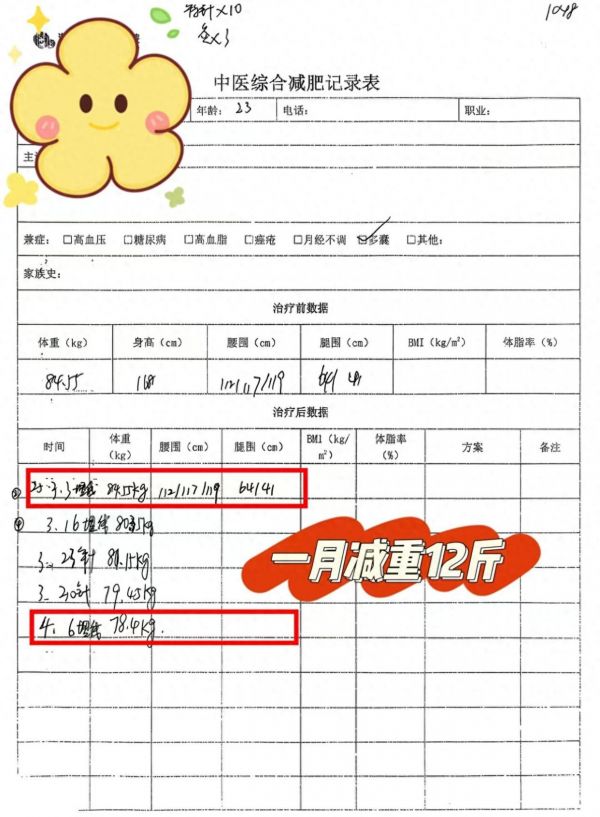 针×10
1048
中医综合减肥记录表
年龄: 23 电话: 职业:
主
兼症: □高血压 □糖尿病 □高血脂 □痤疮 □月经不调 ☑多囊 □其他:
家族史:
治疗前数据
体重(kg) 身高(cm) 腰围(cm) 腿围(cm) BMI(kg/m²) 体脂率(%)
84.55 168 112/117/119 64/41
治疗后数据
时间 体重(kg) 腰围(cm) 腿围(cm) BMI(kg/m²) 体脂率(%) 方案 备注
3.3埋线 84.55kg 112/117/119 64/41
3.16埋线
3.23针
一月减重12斤
3.30针 79.45kg
4.6埋线 78.4kg.